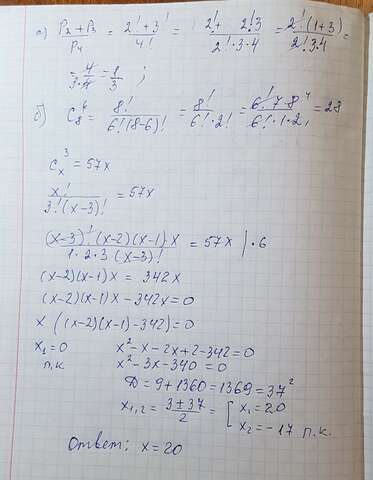 а) P₂ + P₃ / P₄ = 2! + 3! / 4! = 2! + 2!3 / 2!·3·4 = 2!(1+3) / 2!3·4 =
= 4 / 3·4 = 8 / 3 ;
б) C₈⁶ = 8! / 6!(8-6)! = 8! / 6!·2! = 6!·7·8⁴ / 6!·1·2₁ = 28
Cₓ³ = 57x
x! / 3!(x-3)! = 57x
(x-3)!(x-2)(x-1)x / 1·2·3(x-3)! = 57x |·6
(x-2)(x-1)x = 342x
(x-2)(x-1)x - 342x = 0
x((x-2)(x-1)-342) = 0
x₁ = 0 x² - x - 2x + 2 - 342 = 0
п.к x² - 3x - 340 = 0
D = 9 + 1360 = 1369 = 37²
x₁,₂ = 3 ± 37 / 2 = [ x₁ = 20
x₂ = -17 п.к.
Ответ: x = 20